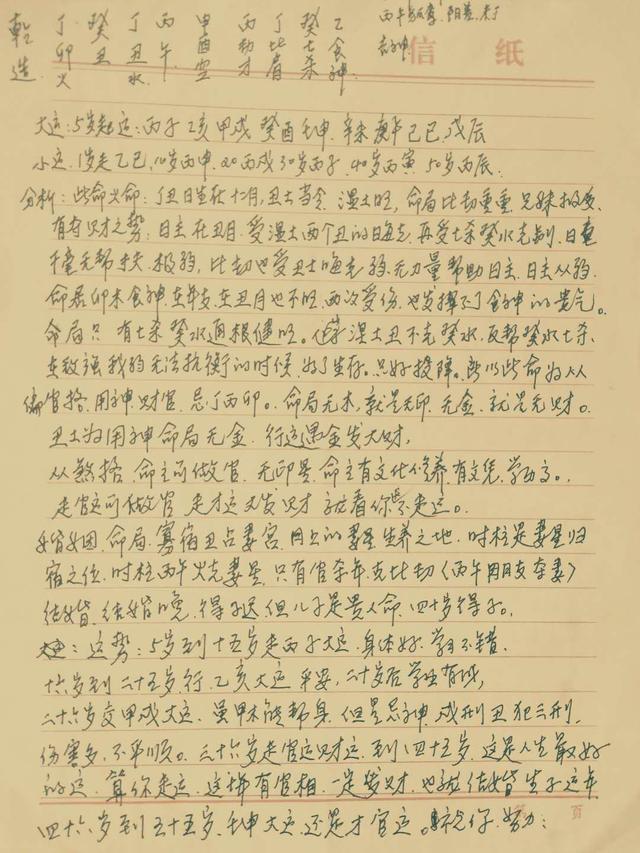 丙午 阳差
乾 丁 癸 丁 丙 甲 丙 丁 癸 乙
卯 丑 丑 午 酉 劫 比 七 食
造 火 水 空 才 肩 杀 神
信 纸
大运:5岁起运:丙子 乙亥 甲戌 癸酉 壬申 辛未 庚午 己巳 戊辰
小运 1岁走乙巳,10岁丙申 20丙戌 30岁丙子 40岁丙寅 50岁丙辰
分析:此命火命:丁丑日生在十二月,丑土当令 湿土旺,命局比劫重重 兄妹
有夺财之势:日主在丑月 受湿土两个丑的晦克 再受七杀癸水克制 日主
无帮扶 极弱,比劫也受丑土晦克弱 无力量帮助日主 日主从弱
命局卯木食神在年支 在丑月也不旺 两次受伤 也发挥不了食神的贵气。
命局只有七杀癸水通根健旺。湿土丑不克癸水,反帮癸水七杀、
在敌强我弱无法抗衡的时候 为了生存。只好投降。所以此命为从
偏官格 用神财官 忌丁丙卯。命局无木,就是无印 无金 就是无财。
丑土为用神命局无金 行运遇金发大财,
从煞格 命主可做官 无印星 命主有文化修养 有文凭 学历高。
走官运可做官 走才运又发财 就看你走运。
婚姻 命局 寡宿丑占妻宫 月上的妻星生养之地 时柱是妻星归
宿之位 时柱丙午火克妻星 只有官杀年克比劫《丙午月朋友夺妻》
结婚 结婚晚 得子迟 但儿子是贵人命 四十岁得子。
运势:5岁到十五岁走丙子大运 身体好 学习不错
十六岁到二十五岁行 乙亥大运 平安,二十岁后学业有成,
二十六岁交甲戌大运 虽甲木能帮身 但是忌神 戌刑丑犯三刑
伤害多 不平顺。三十六岁走官运财运 到四十五岁 这是人生最好
的运 算你走运 这样有官相 一定发财 也能结婚生子这年
四十六岁到五十五岁 壬申大运 还是才官运。祝你 努力:
页